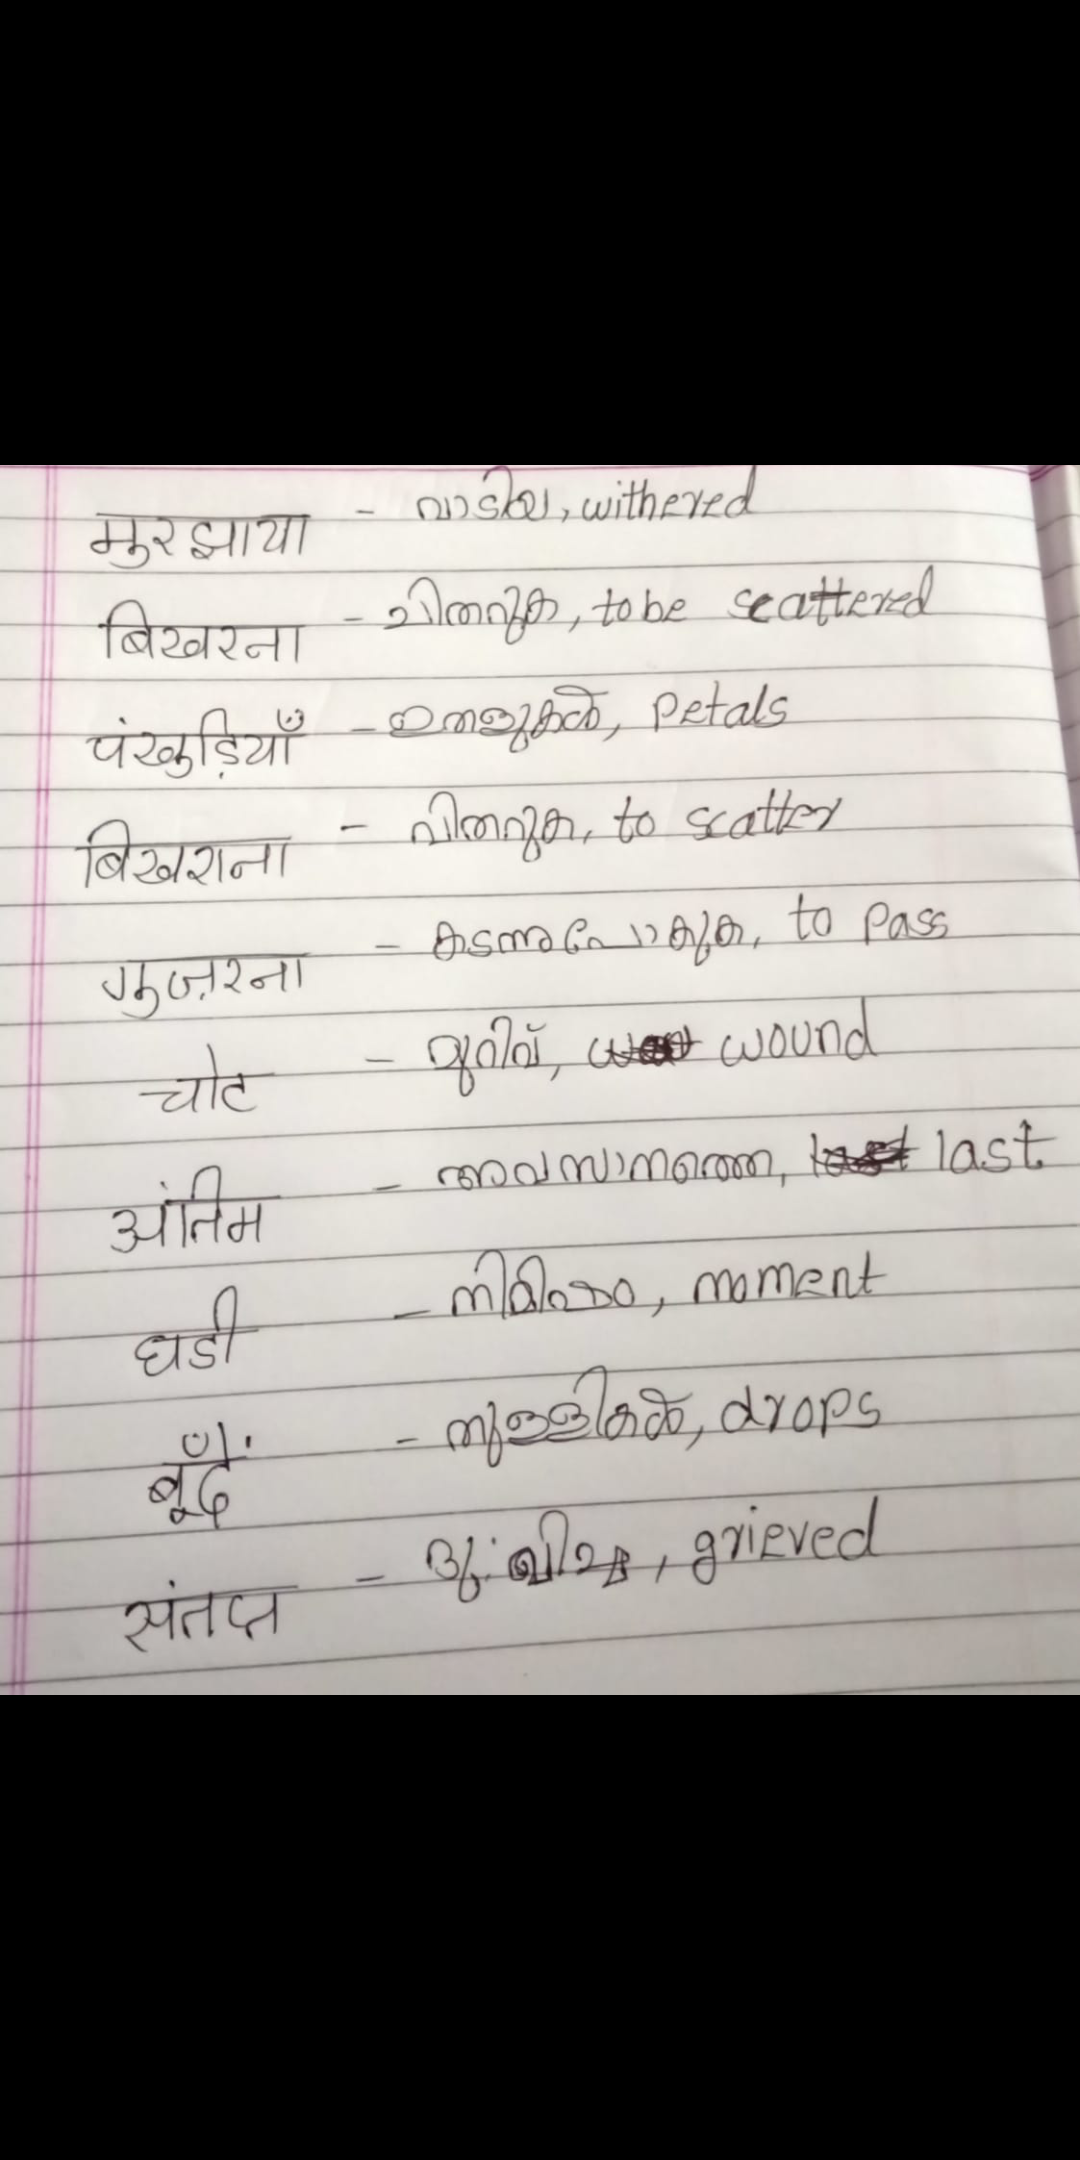 मुरझाया - വാടിയ, withered
बिखरना - ചിതറുക, to be scattered
पंखुड़ियाँ - ഇതളുകൾ, Petals
बिखराना - വിതറുക, to scatter
गुज़रना - കടന്നുപോകുക, to pass
चोट - മുറിവ്, wound
अंतिम - അവസാനത്തെ, last
घडी - നിമിഷം, moment
बूँदें - തുള്ളികൾ, drops
संतप्त - ദുഃഖിച്ച, grieved